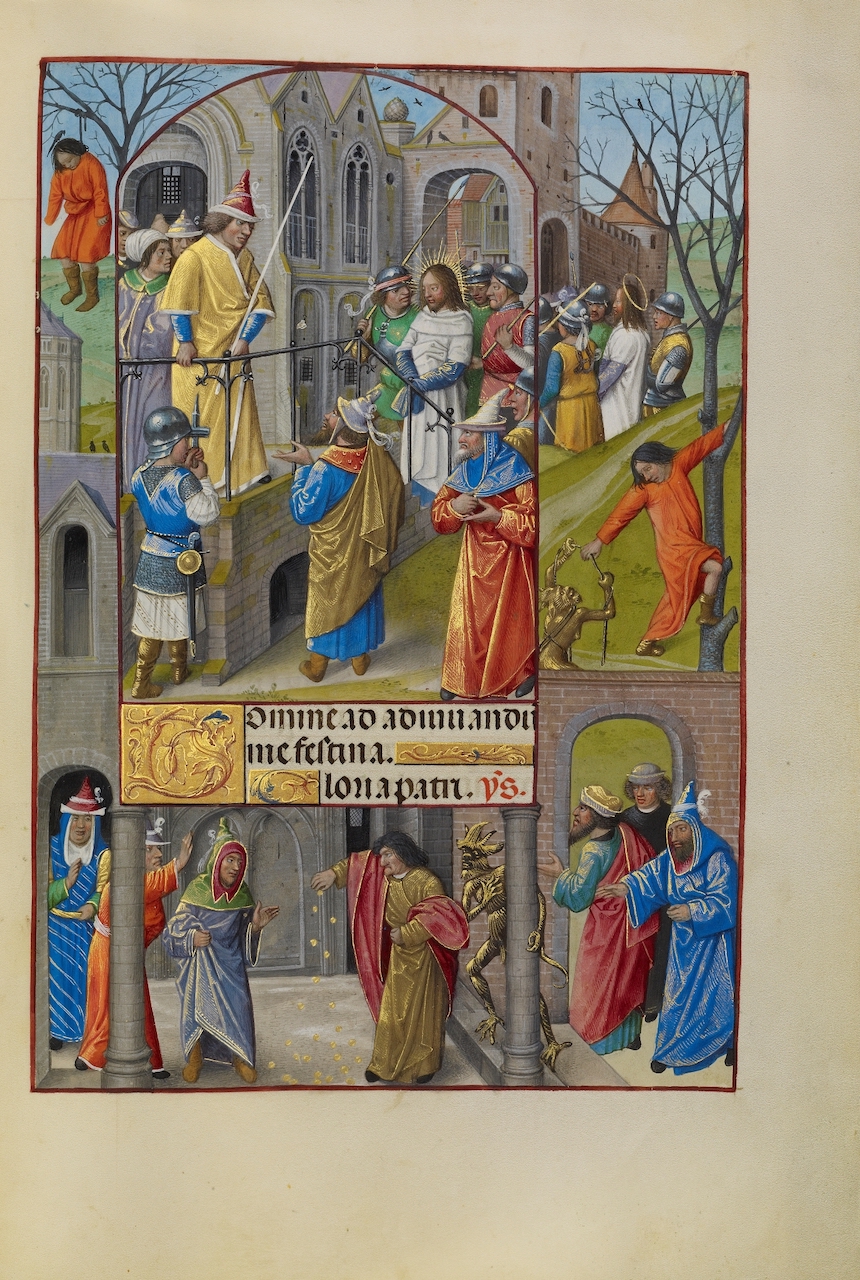 Domine ad adiuuandū
me festina.
Gloria patri. ys.